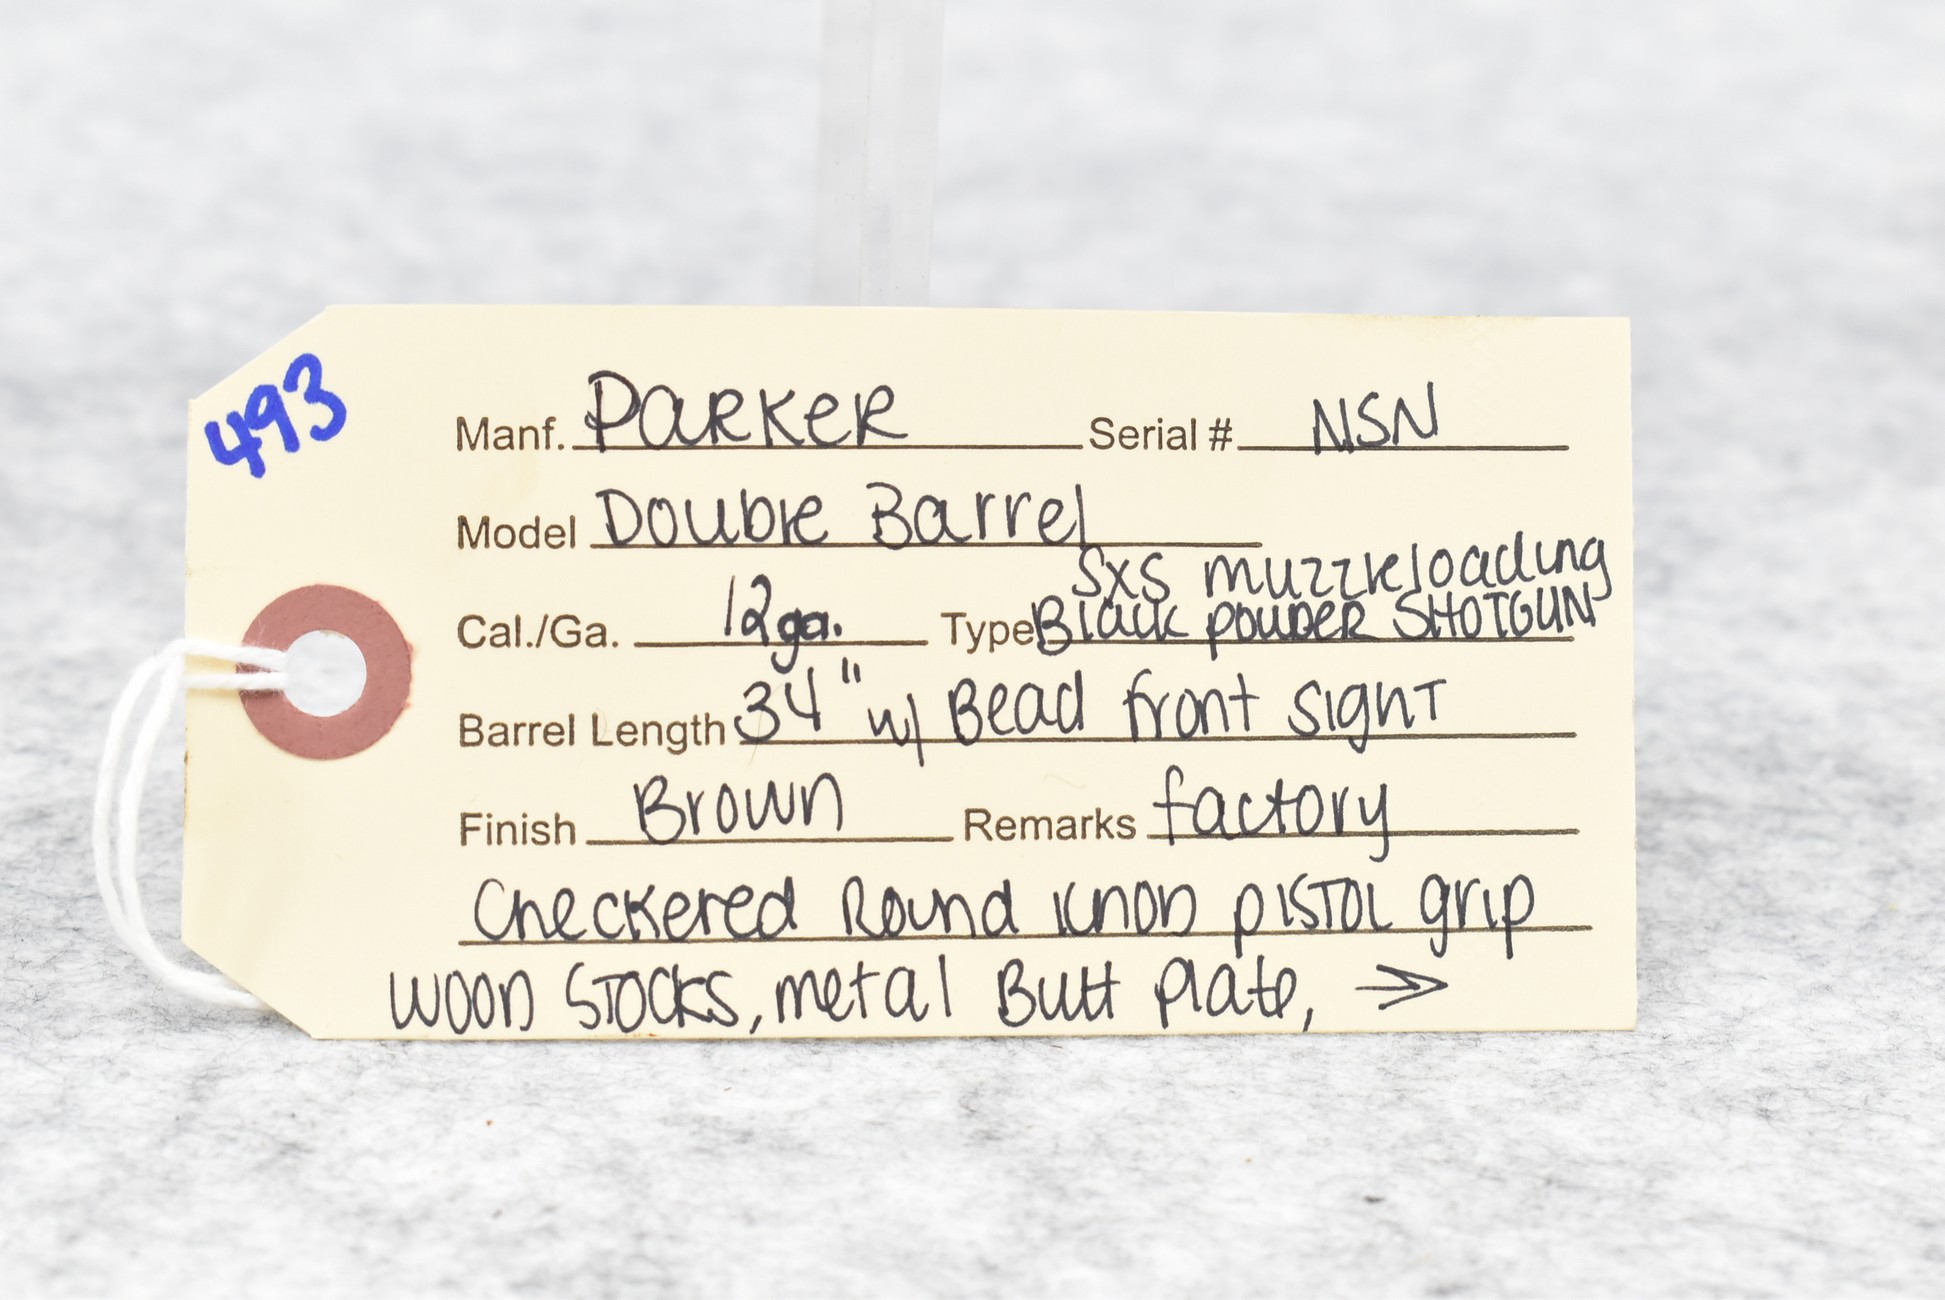 493
Manf. Parker Serial # NSN
Model Double Barrel
SxS muzzleloading
Cal./Ga. 12ga. Type Black powder SHOTGUN
Barrel Length 34" w/ Bead front sight
Finish Brown Remarks factory
Checkered Round knob pistol grip
wood stocks, metal Butt plate, →